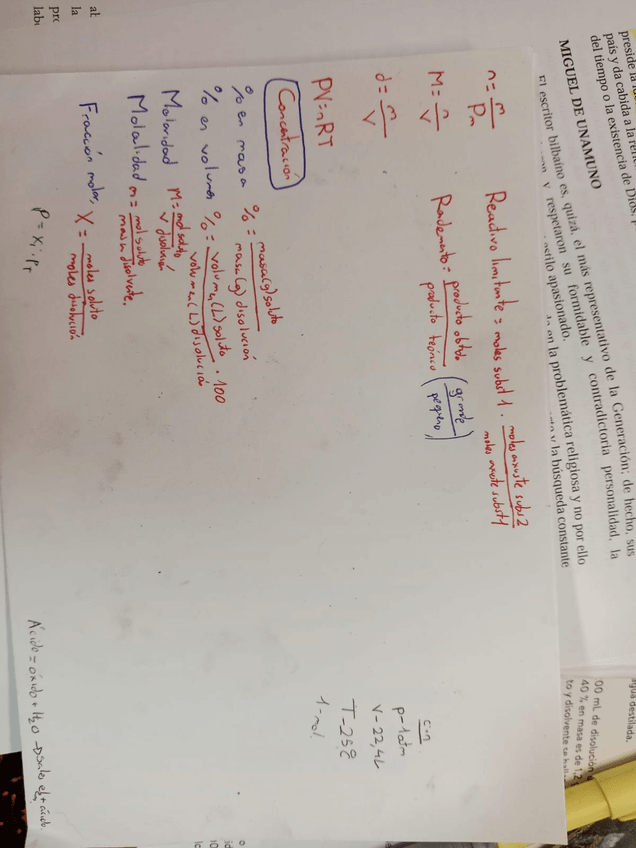 preside la
país y da cabida a la
del tiempo o la existencia de Dios,
MIGUEL DE UNAMUNO
El escritor bilbaíno es, quizá, el más representativo de la Generación; de hecho, sus
y respetaron su formidable y contradictoria personalidad, la
estilo apasionado.
en la problemática religiosa y no por ello
y la búsqueda constante
n = m / Pm
Reactivo limitante = moles subst 1 · moles ajuste subs 2 / moles ajuste subst 1
M = n / V
Rendimiento = producto obtido / producto teórico (grande / pequeño)
d = m / V
PV = nRT
Concentración
% en masa % = masa (g) soluto / masa (g) disolución
% en volumen % = volumen (L) soluto / volumen (L) disolución · 100
Molaridad M = mol soluto / v disolución
Molalidad m = mol soluto / masa disolvente.
Fracción molar, X = moles soluto / moles disolución
P = Xi · PT
c.n
P - 1 atm
V - 22,4 L
T - 298
1 - mol
Ácido = óxido + H2O
agua destilada.
00 mL de disolución
40 % en masa es de 1,2
to y disolvente se